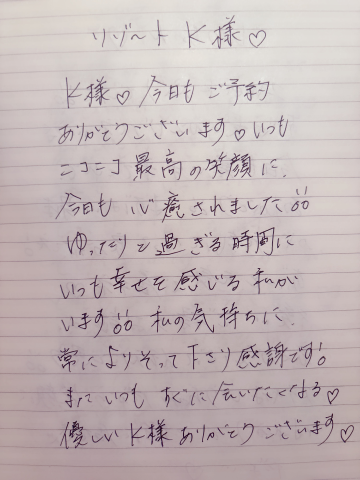 リゾート K様♡
K様♡今日もご予約
ありがとうございます♡いつも
ニコニコ最高の笑顔に、
今日も心癒されました!!
ゆったりと過ぎる時間に
いつも幸せを感じる私が
います!! 私の気持ちに、
常によりそって下さり感謝です!
またいつもすぐに会いたくなる♡
優しいK様ありがとうございます♡